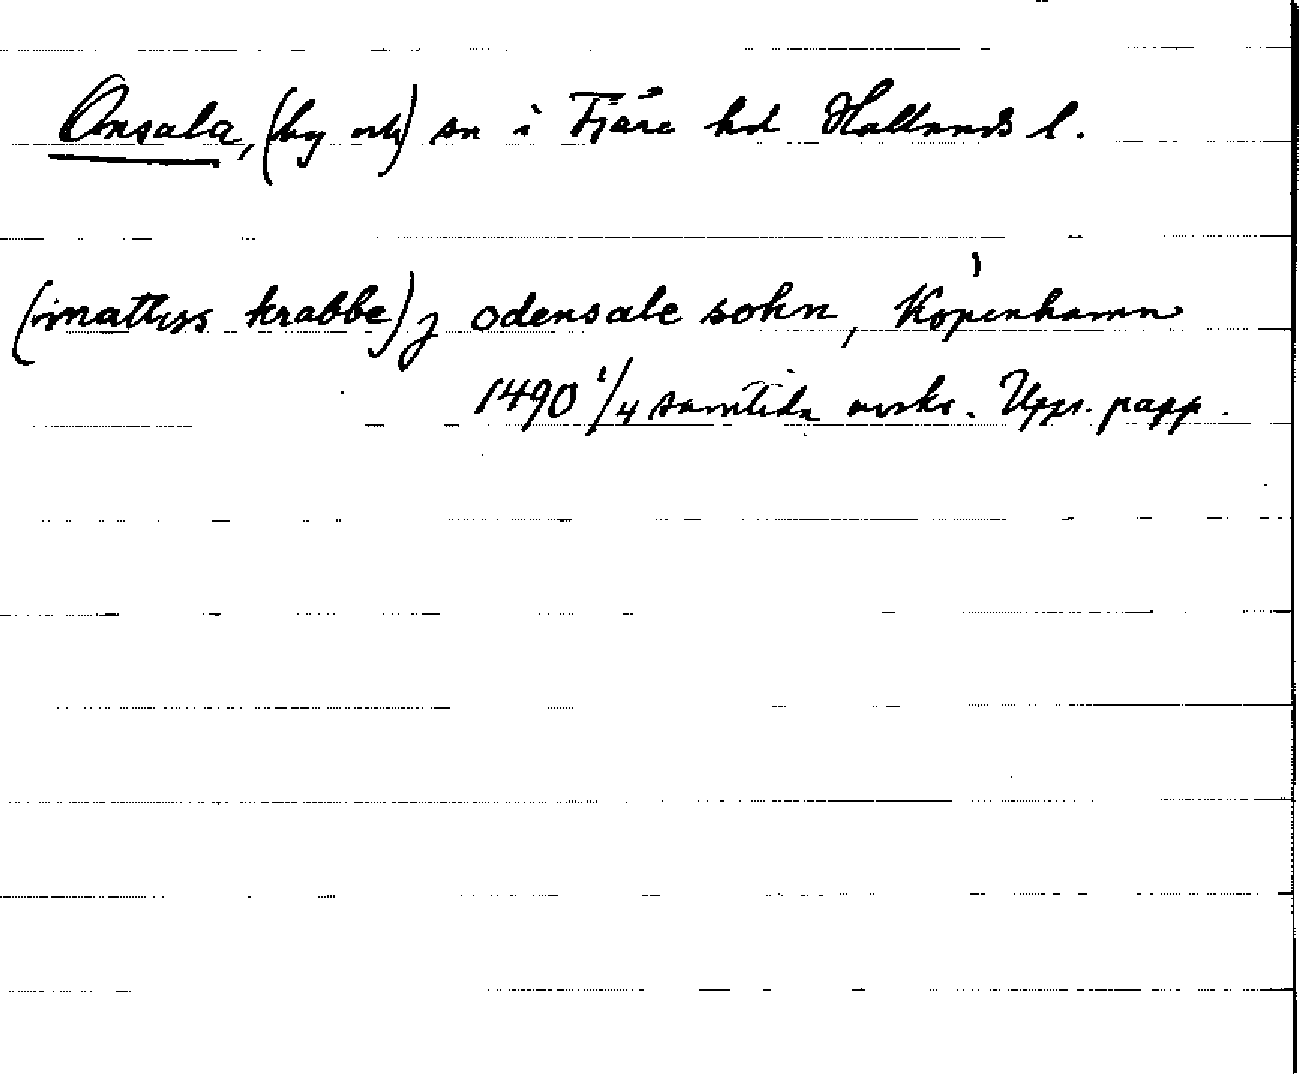 Onsala, (by och) sn i Fjäre hd Hallands l.
(mattiss krabbe) j odensale sokn, Köpenhamn
1490 1/4 samtida avskr. Upps. papp.